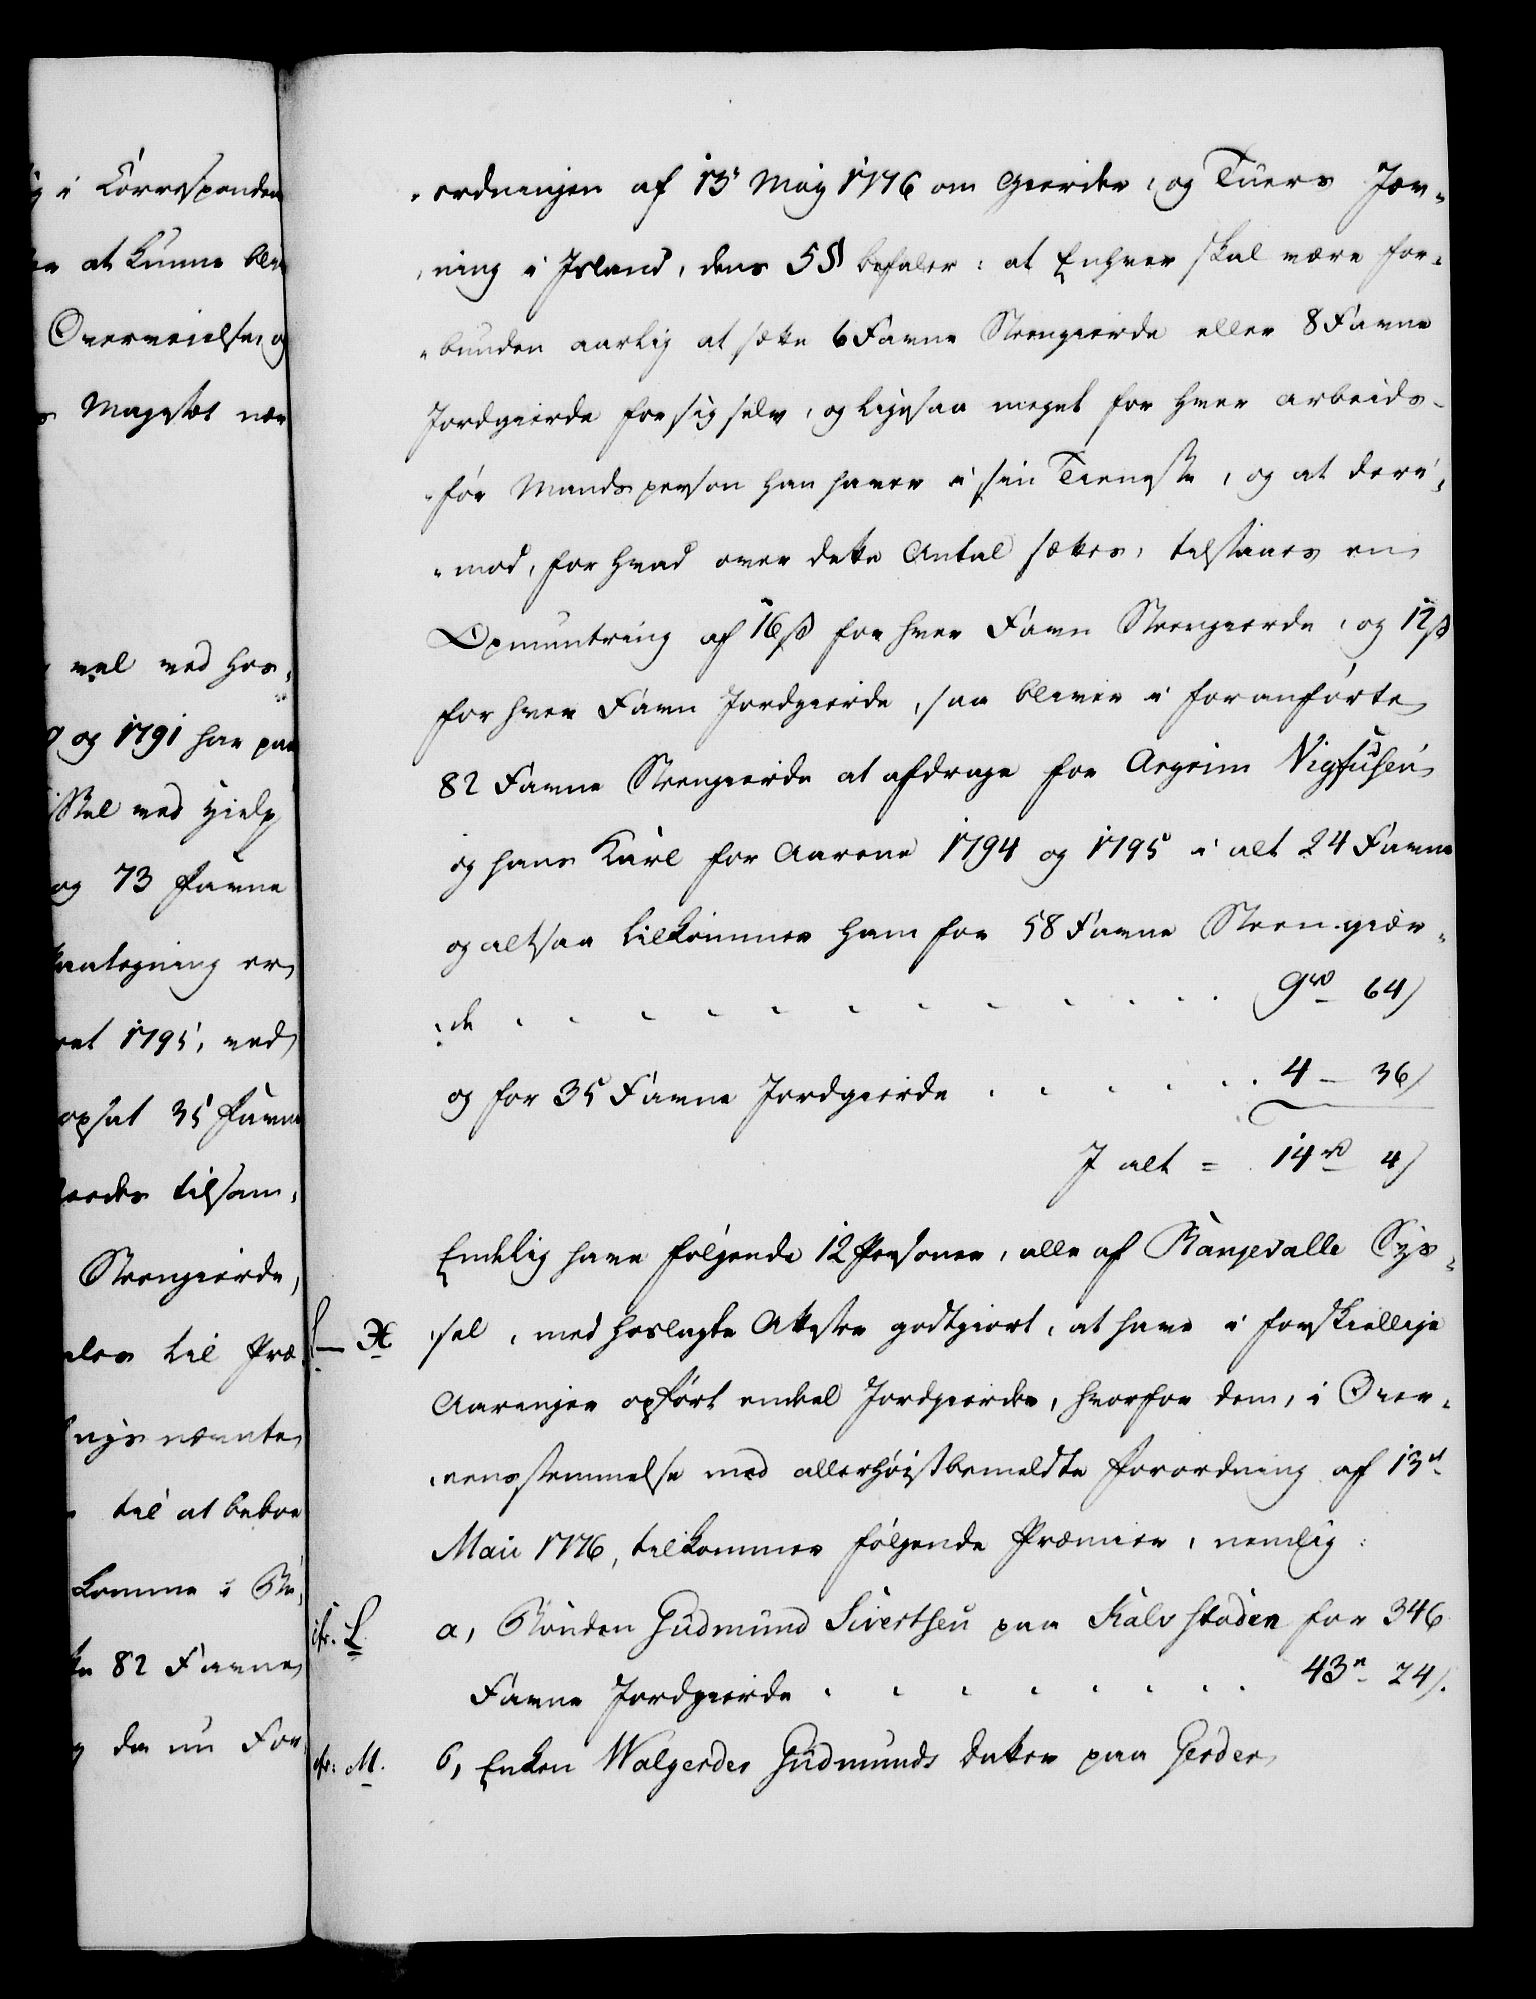 g i Correspondan
at kunne blive
Overveielse, og
Mayestæt nær
vel ved hos-
og 1791 har paa
ved Hielp
og 73 Favne
Paategning er
1795, ved
opsat 35 Favne
tilsam-
Steengierde,
til Præ-
nævnte
til at beboe
komme i
82 Favne
da nu For-
-ordningen af 13' May 1776 om Gierders, og Tuers Jæv-
-ning i Island, dens 5 § befaler: at Enhver skal være for-
-bunden aarlig at sætte 6 Favne Steengierde eller 8 Favne
Jordgierde for sig selv, og ligesaa meget for hver arbeids-
-før Mandsperson han haver i sin Tieneste, og at deri-
-mod, for hvad over dette Antal sættes, tilstaaes en
Opmuntring af 16 ß for hver Favn Steengierde, og 12 ß
for hver Favn Jordgierde, saa bliver i foranførte
82 Favne Steengierde at afdrage for Argrim Vigfusen
og hans Karl for Aarene 1794 og 1795 i alt 24 Favne
og altsaa tilkommer ham for 58 Favne Steengier-
-de . . . . . . . . . . . 9 rd 64 ß
og for 35 Favne Jordgierde . . . . . 4 - 36 ß
I alt = 14 rd 4 ß
Endelig have følgende 12 Personer, alle af Rangevalle Sys-
L - X
-sel, med hoslagte Attester godtgiort, at have i forskiellige
Aaringer opført enkel Jordgierder, hvorfor dem, i Over-
-eensstemmelse med allerhøistbemeldte Forordning af 13de
Maii 1776, tilkommer følgende Præmier, nemlig:
cfr. L
a, Bonden Gudmund Sivertsen paa Kalvstaden for 346
Favne Jordgierde . . . . . . . 43 rd 24 ß.
cfr: M.
b, Enken Walgerder Gudmunds Datter paa Gerder